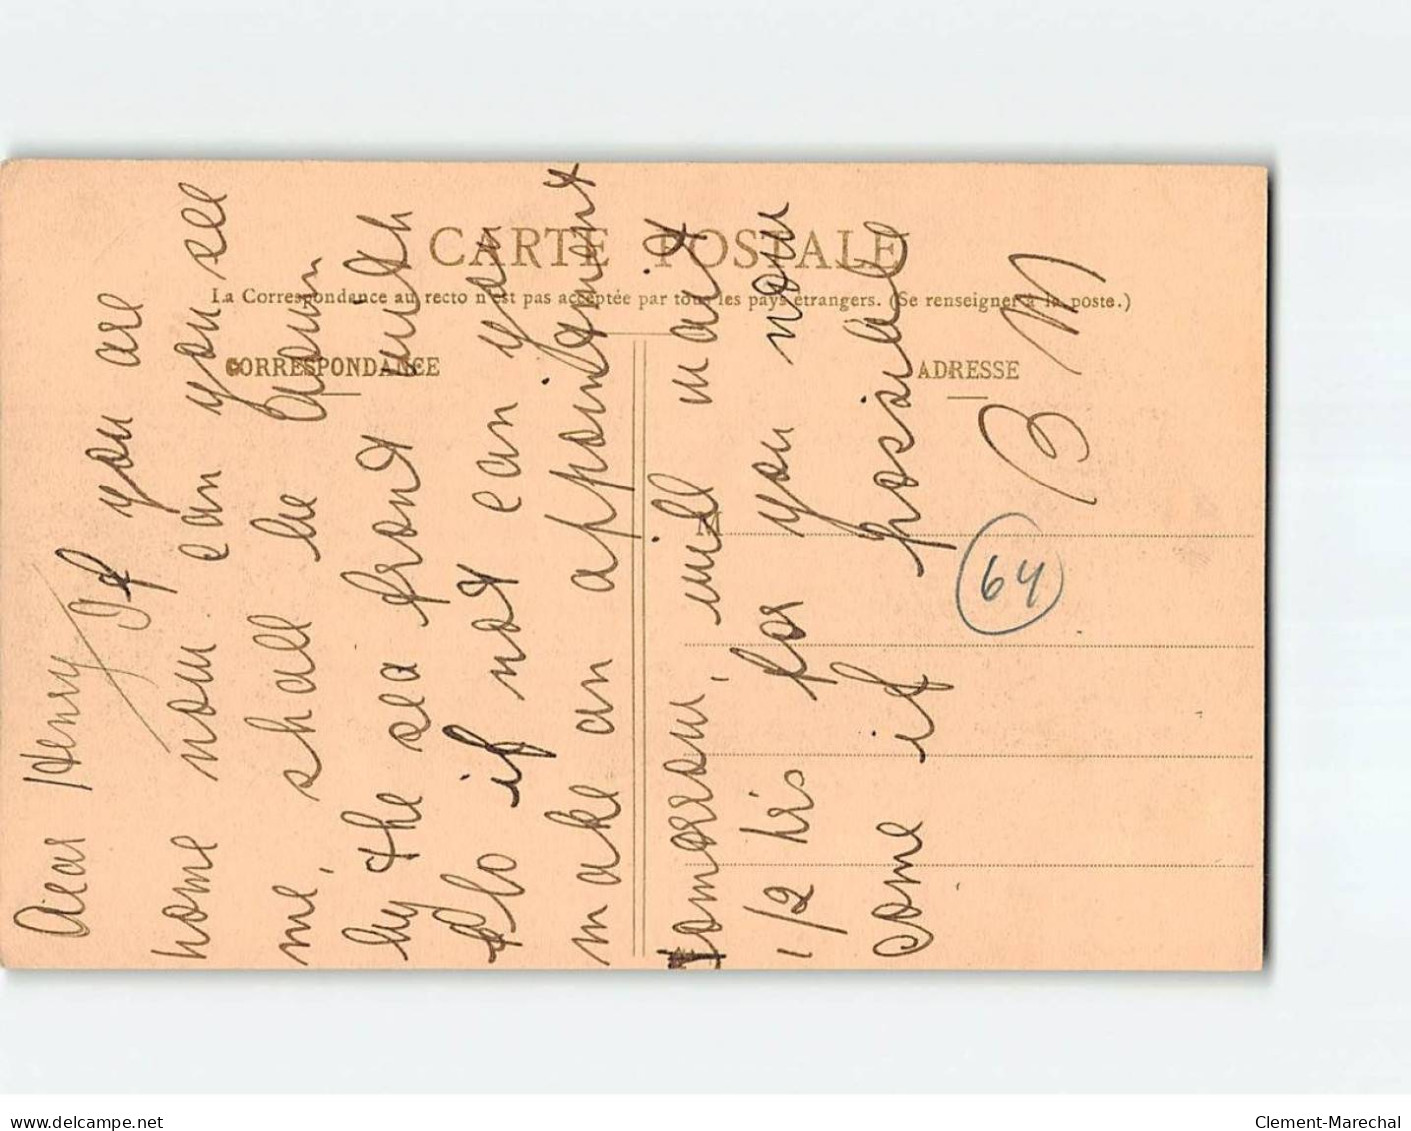 CARTE POSTALE
La Correspondance au recto n'est pas acceptée par tous les pays étrangers. (Se renseigner à la poste.)
CORRESPONDANCE
ADRESSE
M
Dear Henry If you are
home now can you see
me, shall be down
by the sea front with
Flo if not can you
make an appointment
tomorrow, will wait
1/2 hrs for you now
come if possible
B M
64
www.delcampe.net
Clement-Marechal